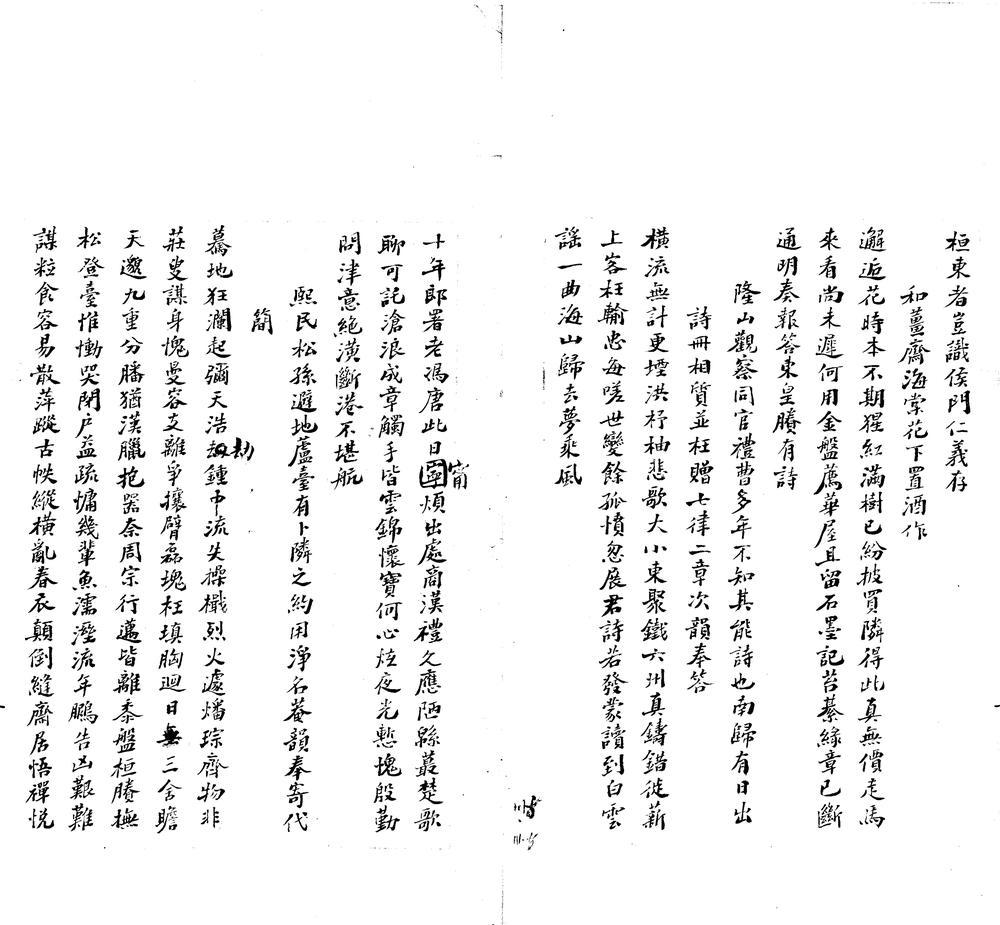 桓東者豈識侯門仁義存
和薑齋海棠花下置酒作
邂逅花時本不期猩紅滿樹已紛披買隣得此真無價走馬
來看尚未遲何用金盤薦華屋且留石墨記苔綦緣章已斷
通明奏報答東皇賸有詩
隆山觀察同官禮曹多年不知其能詩也南歸有日出
詩冊相質並枉贈七律二章次韻奉答
橫流無計更堙洪杼柚悲歌大小東聚鐵六州真鑄錯徙薪
上客枉輸忠每嗟世變餘孤憤忽展君詩若發蒙讀到白雲
謠一曲海山歸去夢乘風
十年郎署老馮唐此日甯煩出處商漢禮久應陋緜蕞楚歌
聊可託滄浪成章觸手皆雲錦懷寶何心炫夜光慙愧殷勤
問津意絕潢斷港不堪航
熙民松孫避地蘆臺有卜隣之約用淨名菴韻奉寄代
簡
驀地狂瀾起彌天浩劫鍾中流失橾檝烈火遽燔琮齊物非
莊叟謀身愧曼容支離爭攘臂磊塊枉填胸迴日無三舍瞻
天邈九重分膰猶漢臘抱器奈周宗行邁皆離黍盤桓賸撫
松登臺惟慟哭閉户益疏慵幾輩魚濡溼流年鵩告凶艱難
謀粒食容易散萍蹤古帙縱橫亂春衣顛倒縫齋居悟禪悦